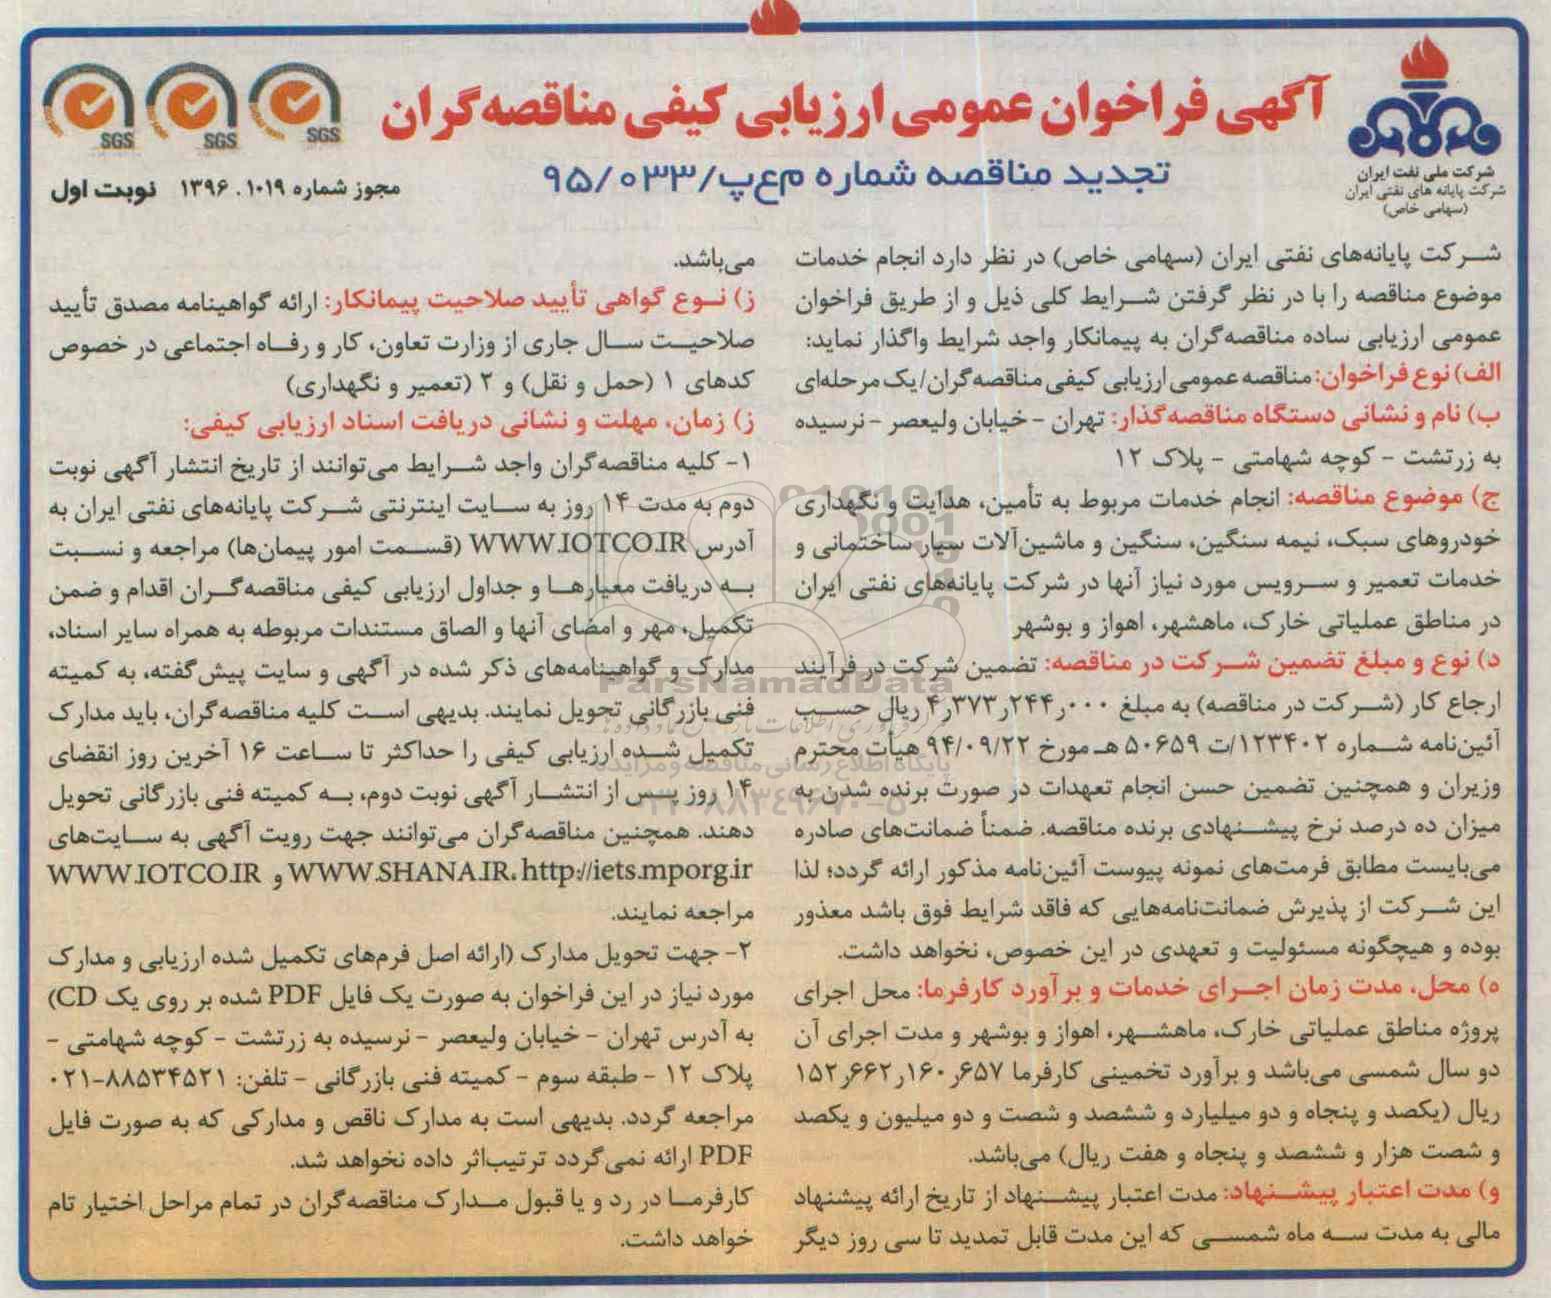 آگهی فراخوان عمومی ارزیابی کیفی مناقصه‌گران
تجدید مناقصه شماره م‌ع‌پ/۹۵/۰۳۳
شرکت ملی نفت ایران
شرکت پایانه های نفتی ایران
(سهامی خاص)
SGS
SGS
SGS
مجوز شماره ۱۰۱۹ . ۱۳۹۶
نوبت اول
شرکت پایانه‌های نفتی ایران (سهامی خاص) در نظر دارد انجام خدمات
موضوع مناقصه را با در نظر گرفتن شرایط کلی ذیل و از طریق فراخوان
عمومی ارزیابی ساده مناقصه‌گران به پیمانکار واجد شرایط واگذار نماید:
الف) نوع فراخوان: مناقصه عمومی ارزیابی کیفی مناقصه‌گران/یک مرحله‌ای
ب) نام و نشانی دستگاه مناقصه‌گذار: تهران - خیابان ولیعصر - نرسیده
به زرتشت - کوچه شهامتی - پلاک ۱۲
ج) موضوع مناقصه: انجام خدمات مربوط به تأمین، هدایت و نگهداری
خودروهای سبک، نیمه سنگین، سنگین و ماشین‌آلات سیار ساختمانی و
خدمات تعمیر و سرویس مورد نیاز آنها در شرکت پایانه‌های نفتی ایران
در مناطق عملیاتی خارک، ماهشهر، اهواز و بوشهر
د) نوع و مبلغ تضمین شرکت در مناقصه: تضمین شرکت در فرآیند
ارجاع کار (شرکت در مناقصه) به مبلغ ۴٫۳۷۳٫۲۴۴٫۰۰۰ ریال حسب
آئین‌نامه شماره ۱۲۳۴۰۲/ت ۵۰۶۵۹ هـ مورخ ۹۴/۰۹/۲۲ هیأت محترم
وزیران و همچنین تضمین حسن انجام تعهدات در صورت برنده شدن به
میزان ده درصد نرخ پیشنهادی برنده مناقصه. ضمناً ضمانت‌های صادره
می‌بایست مطابق فرمت‌های نمونه پیوست آئین‌نامه مذکور ارائه گردد؛ لذا
این شرکت از پذیرش ضمانت‌نامه‌هایی که فاقد شرایط فوق باشد معذور
بوده و هیچگونه مسئولیت و تعهدی در این خصوص، نخواهد داشت.
ه) محل، مدت زمان اجرای خدمات و برآورد کارفرما: محل اجرای
پروژه مناطق عملیاتی خارک، ماهشهر، اهواز و بوشهر و مدت اجرای آن
دو سال شمسی می‌باشد و برآورد تخمینی کارفرما ۱۵۲٫۶۶۲٫۱۶۰٫۶۵۷
ریال (یکصد و پنجاه و دو میلیارد و ششصد و شصت و دو میلیون و یکصد
و شصت هزار و ششصد و پنجاه و هفت ریال) می‌باشد.
و) مدت اعتبار پیشنهاد: مدت اعتبار پیشنهاد از تاریخ ارائه پیشنهاد
مالی به مدت سه ماه شمسی که این مدت قابل تمدید تا سی روز دیگر
می‌باشد.
ز) نوع گواهی تأیید صلاحیت پیمانکار: ارائه گواهینامه مصدق تأیید
صلاحیت سال جاری از وزارت تعاون، کار و رفاه اجتماعی در خصوص
کدهای ۱ (حمل و نقل) و ۲ (تعمیر و نگهداری)
ز) زمان، مهلت و نشانی دریافت اسناد ارزیابی کیفی:
۱- کلیه مناقصه‌گران واجد شرایط می‌توانند از تاریخ انتشار آگهی نوبت
دوم به مدت ۱۴ روز به سایت اینترنتی شرکت پایانه‌های نفتی ایران به
آدرس WWW.IOTCO.IR (قسمت امور پیمان‌ها) مراجعه و نسبت
به دریافت معیارها و جداول ارزیابی کیفی مناقصه‌گران اقدام و ضمن
تکمیل، مهر و امضای آنها و الصاق مستندات مربوطه به همراه سایر اسناد،
مدارک و گواهینامه‌های ذکر شده در آگهی و سایت پیش‌گفته، به کمیته
فنی بازرگانی تحویل نمایند. بدیهی است کلیه مناقصه‌گران، باید مدارک
تکمیل شده ارزیابی کیفی را حداکثر تا ساعت ۱۶ آخرین روز انقضای
۱۴ روز پس از انتشار آگهی نوبت دوم، به کمیته فنی بازرگانی تحویل
دهند. همچنین مناقصه‌گران می‌توانند جهت رویت آگهی به سایت‌های
WWW.SHANA.IR، http://iets.mporg.ir و WWW.IOTCO.IR
مراجعه نمایند.
۲- جهت تحویل مدارک (ارائه اصل فرم‌های تکمیل شده ارزیابی و مدارک
مورد نیاز در این فراخوان به صورت یک فایل PDF شده بر روی یک CD)
به آدرس تهران - خیابان ولیعصر - نرسیده به زرتشت - کوچه شهامتی -
پلاک ۱۲ - طبقه سوم - کمیته فنی بازرگانی - تلفن: ۸۸۵۳۴۵۲۱-۰۲۱
مراجعه گردد. بدیهی است به مدارک ناقص و مدارکی که به صورت فایل
PDF ارائه نمی‌گردد ترتیب‌اثر داده نخواهد شد.
کارفرما در رد و یا قبول مدارک مناقصه‌گران در تمام مراحل اختیار تام
خواهد داشت.
ParsNamadData
پایگاه اطلاع رسانی مناقصه و مزایده